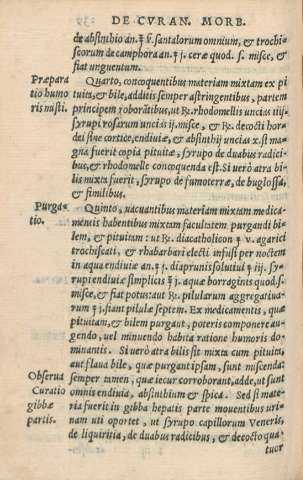 DE CVRAN. MORB.
de absinthio an. ʒ ß. santalorum omnium, & trochi-
scorum de camphora an. ʒ j. ceræ quod. s. misce, &
fiat unguentum.
Præpara
tio humo
ris misti.
Quarto, concoquentibus materiam mixtam ex pi
tuita, & bile, additis semper astringentibus, partem
principem roborātibus, ut ℞. rhodomellis uncias iiij.
syrupi rosarum uncias ij. misce, & ℞. decocti hor-
dei sine cortice, endiuiæ, & absinthij uncias x. si ma-
gna fuerit copia pituitæ, syrupo de duabus radici-
bus, & rhodomelle concoquenda est. Si uerò atra bi-
lis mixta fuerit, syrupo de fumoterræ, de buglossa,
& similibus.
Purga-
tio.
Quinto, uacuantibus materiam mixtam medica-
mentis habentibus mixtam facultatem purgandi bi-
lem, & pituitam: ut ℞. diacatholicon ʒ v. agarici
trochiscati, & rhabarbari electi infusi per noctem
in aqua endiuiæ an. ʒ j. diaprunis solutiui ʒ iij. sy-
rupi endiuiæ simplicis ℥ j. aquæ borraginis quod. s.
misce, & fiat potus: aut ℞. pilularum aggregatiua-
rum ʒ j. fiant pilulæ septem. Ex medicamentis, quæ
pituitam, & bilem purgant, poteris componere au-
gendo, uel minuendo habita ratione humoris do-
minantis. Si uerò atra bilis sit mixta cum pituita,
aut flaua bile, quæ purgant ipsam, sunt miscenda:
semper tamen, quæ iecur corroborant, adde, ut sunt
omnis endiuia, absinthium & spica. Sed si mate-
Obserua
Curatio
gibbæ
partis.
ria fuerit in gibba hepatis parte mouentibus uri-
nam uti oportet, ut syrupo capillorum Veneris,
de liquiritia, de duabus radicibus, & decocto qua-
tuor